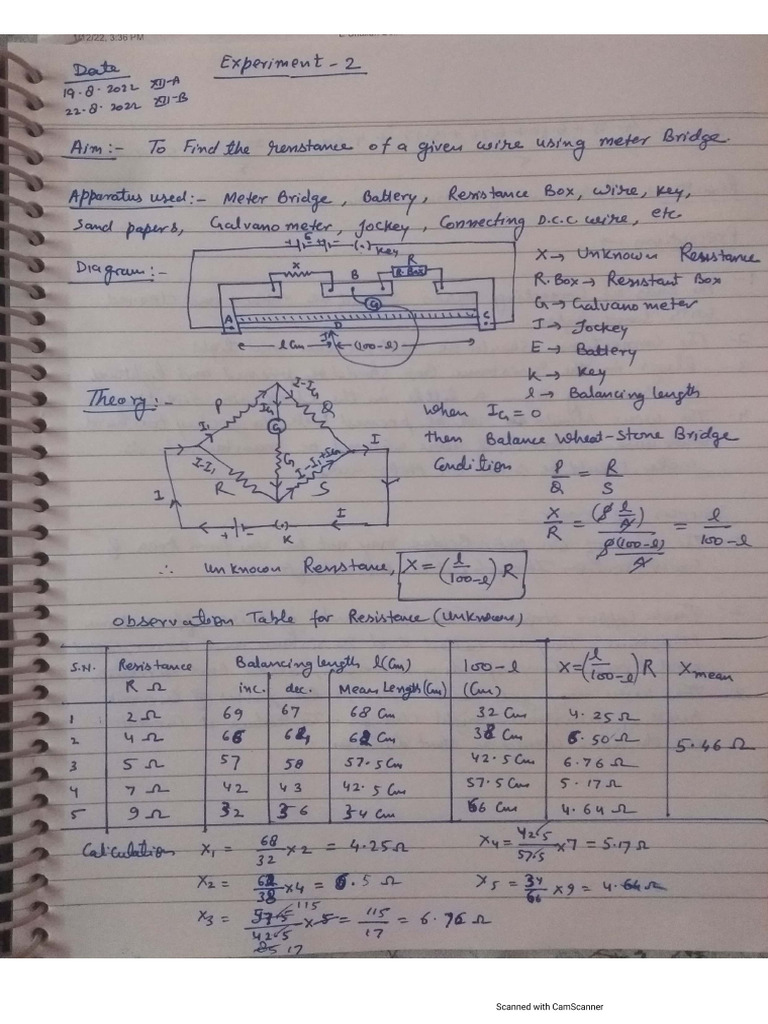 10/2/22, 3:36 PM
Experiment - 2
Date
19.8.2022 XII-A
22.8.2022 XII-B
Aim:- To Find the resistance of a given wire using meter Bridge.
Apparatus used:- Meter Bridge, Battery, Resistance Box, wire, key,
Sand papers, Galvanometer, Jockey, Connecting D.C.C wire, etc.
Diagram:-
E
+ - + - (·) Key
X B R
R.Box
G
A D C
J
l cm (100-l)
X → Unknown Resistance
R.Box → Resistant Box
G → Galvanometer
J → Jockey
E → Battery
K → Key
l → Balancing length
Theory:-
P I-IG Q
I1 IG G
I-I1 G I-I1+IG
R S I
I
+ - K I
when IG = 0
then Balance Wheat-Stone Bridge
Condition P/Q = R/S
X/R = (ρ l/A) / (ρ(100-l)/A) = l/100-l
∴ Unknown Resistance, X = (l/100-l) R
Observation Table for Resistance (Unknown)
S.N. Resistance R Ω Balancing length l(cm) 100-l (cm) X=(l/100-l)R Xmean
inc. dec. Mean Length (cm)
1 2Ω 69 67 68 cm 32 cm 4.25Ω
2 4Ω 38 cm 6.50Ω
3 5Ω 57 58 57.5 cm 42.5 cm 6.76Ω
4 7Ω 42 43 42.5 cm 57.5 cm 5.17Ω
5 9Ω 32 36 34 cm 66 cm 4.64Ω
5.46Ω
Calculation X1 = 68/32 x2 = 4.25Ω
X4 = 42.5/57.5 x7 = 5.17Ω
X2 = 62/38 x4 = 6.5Ω
X5 = 34/66 x9 = 4.64Ω
X3 = 57.5/42.5 x5 = 115/17 = 6.76Ω
Scanned with CamScanner